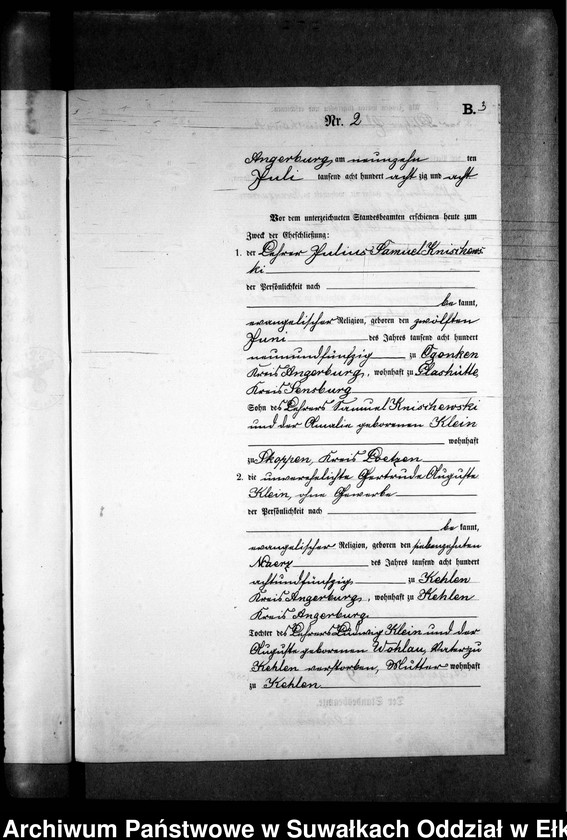 B. 3
Nr. 2
Angerburg am neunzehn ten
Juli tausend acht hundert acht zig und acht
Vor dem unterzeichneten Standesbeamten erschienen heute zum
Zweck der Eheschließung:
1. der Lehrer Julius Samuel Knischews
ki
der Persönlichkeit nach
be kannt,
evangelischer Religion, geboren den zwölften
Juni des Jahres tausend acht hundert
neunundfünfzig zu Ogonken
Kreis Angerburg, wohnhaft zu Glashütte
Kreis Sensburg
Sohn des Lehrers Samuel Knischewski
und der Amalie geborenen Klein
wohnhaft
zu Skoppen, Kreis Loetzen
2. die unverehelichte Gertrude Auguste
Klein, ohne Gewerbe
der Persönlichkeit nach
be kannt,
evangelischer Religion, geboren den siebenzehnten
Maerz des Jahres tausend acht hundert
achtundfünfzig zu Kehlen
Kreis Angerburg, wohnhaft zu Kehlen
Kreis Angerburg
Tochter des Lehrers Ludwig Klein und der
Auguste geborenen Wohlau, Vater zu
Kehlen verstorben, Mutter wohnhaft
zu Kehlen
Archiwum Państwowe w Suwałkach Oddział w Ełk